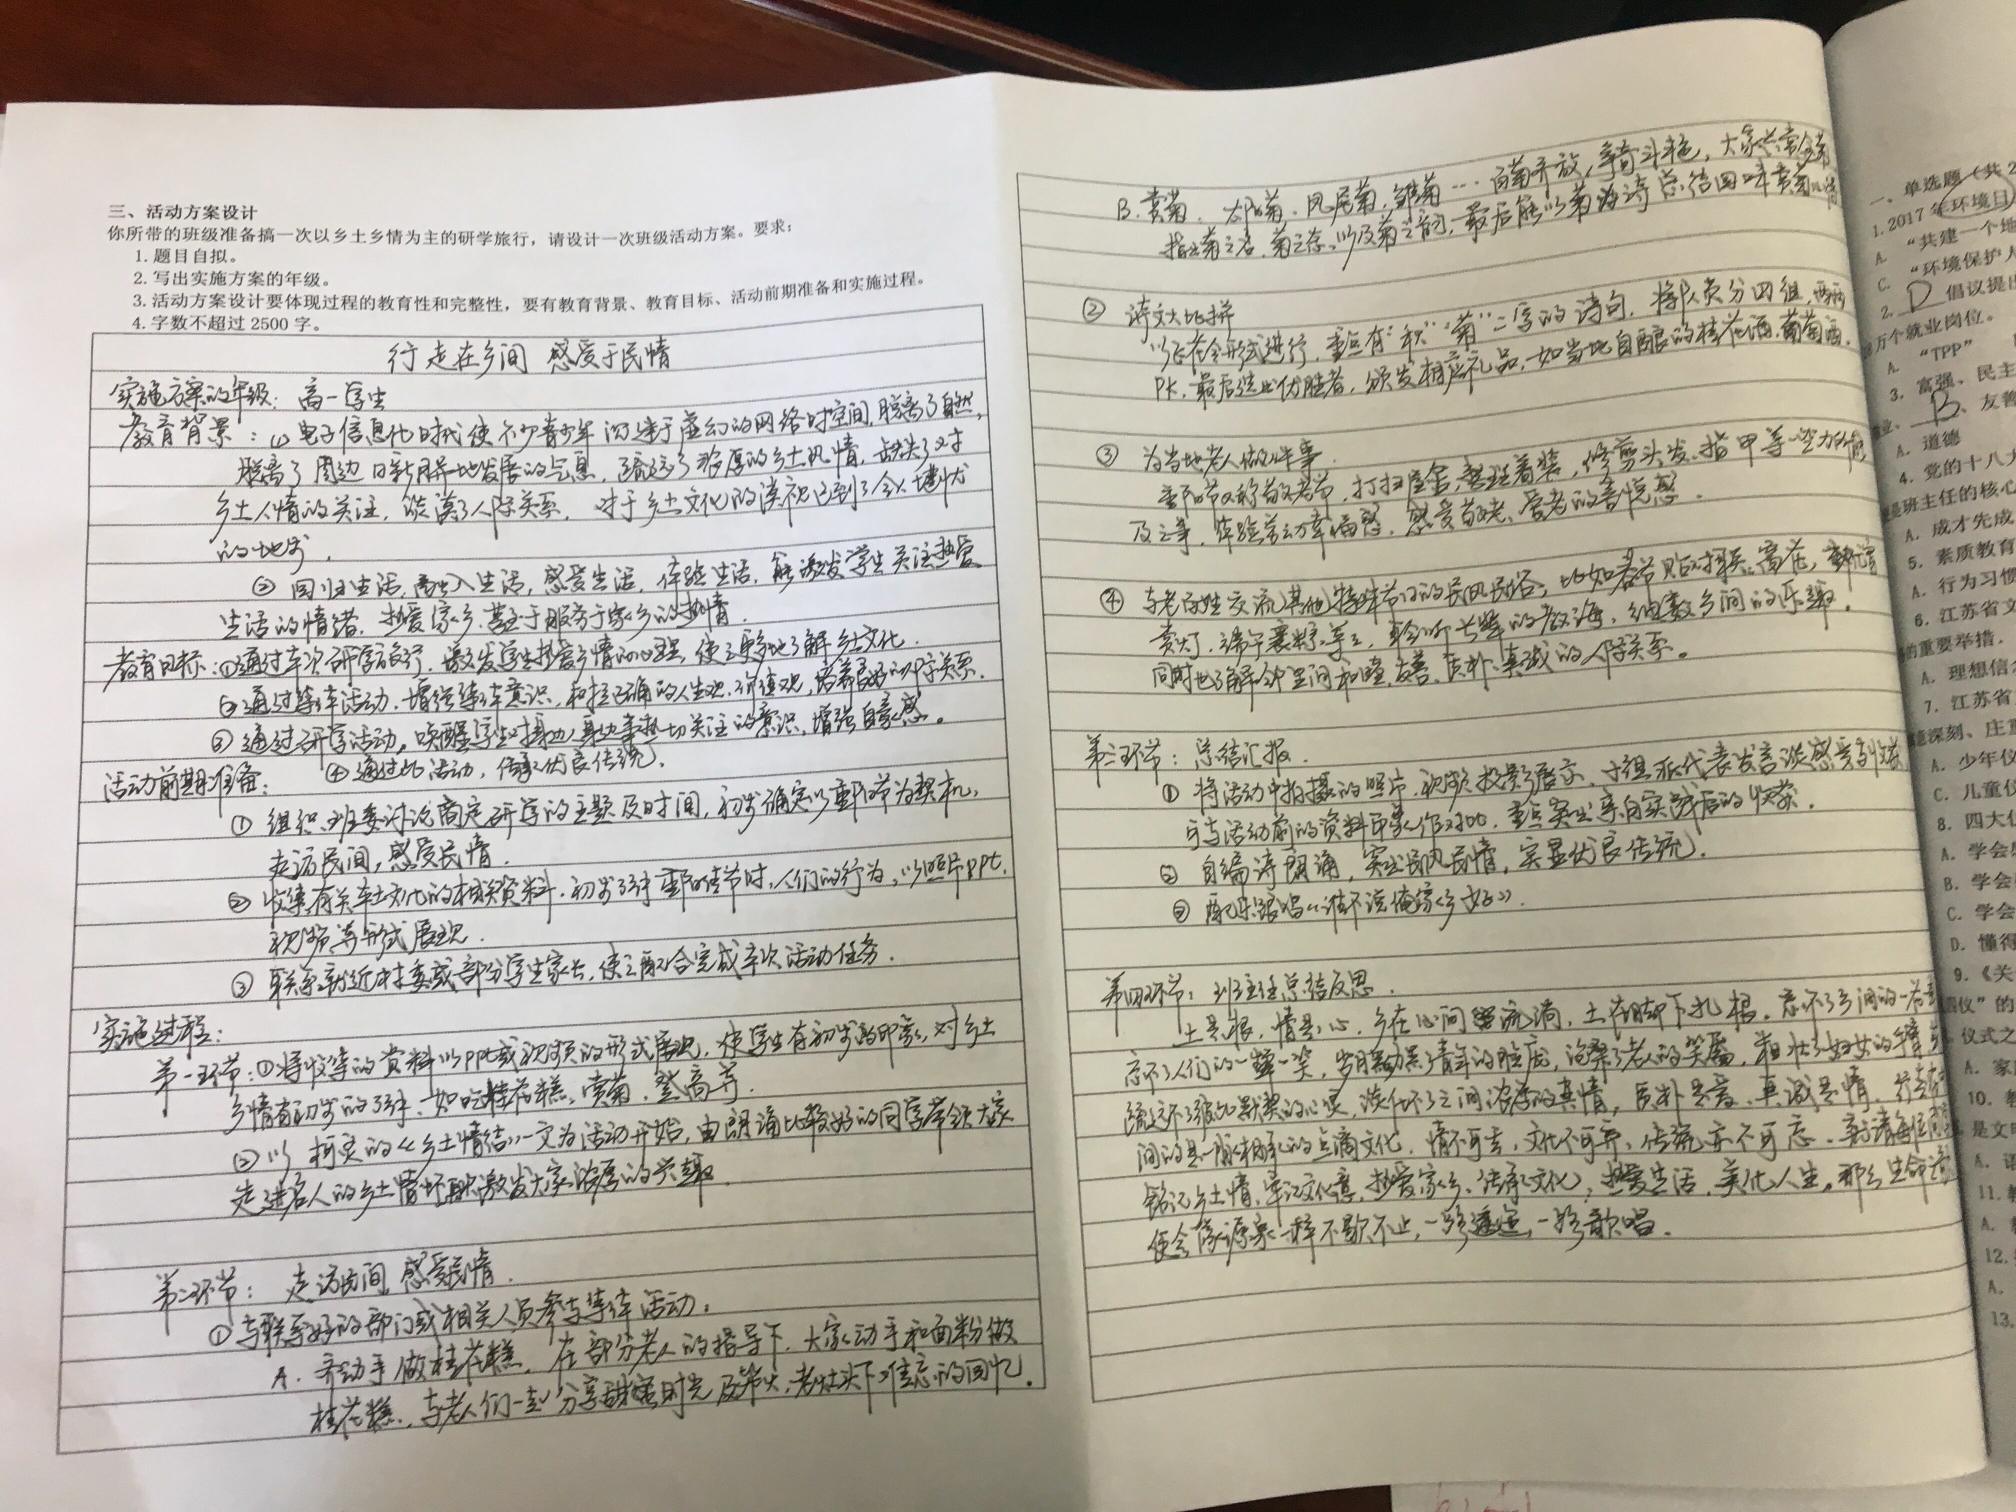 三、活动方案设计
你所带的班级准备搞一次以乡土乡情为主的研学旅行，请设计一次班级活动方案。要求：
1. 题目自拟。
2. 写出实施方案的年级。
3. 活动方案设计要体现过程的教育性和完整性，要有教育背景、教育目标、活动前期准备和实施过程。
4. 字数不超过 2500 字。
行走在乡间 感受于民情
实施方案的年级：高一学生
教育背景：⑴电子信息化时代使不少青少年沉迷于虚幻的网络时空间，脱离了自然，
脱离了周边日新月异地发展的气息，疏远了浓厚的乡土风情，缺失了对
乡土人情的关注，淡漠了人际关系，对于乡土文化的漠视已到了令人堪忧
的地步．
② 回归生活，融入生活，感受生活，体验生活，能激发学生关注热爱
生活的情绪，热爱家乡，甚至于服务于家乡的热情．
教育目标：①通过本次研学旅行，激发学生热爱乡情的心理，使之更多地了解乡土文化．
②通过集体活动，增强集体意识，树立正确的人生观、价值观，培养良好的人际关系．
③ 通过研学活动，唤醒学生对身边人身边事热切关注的意识，增强自豪感。
活动前期准备： ④通过此活动，传承优良传统．
① 组织班委讨论商定研学的主题及时间，初步确定以重阳节为契机，
走访民间，感受民情．
② 收集有关本土文化的相关资料，初步了解重阳佳节时，人们的行为，以照片PPt．
视频等形式展现．
③ 联系就近村委或部分学生家长，使之配合完成本次活动任务．
实施过程：
第一环节：①将收集的资料以PPt或视频的形式展现，使学生有初步的印象，对乡土
乡情有初步的了解，如吃桂花糕、赏菊、登高等．
②以柯灵的《乡土情结》一文为活动开始，由朗诵比较好的同学带领大家
走进名人的乡土情怀，激发大家浓厚的兴趣．
第二环节： 走访民间，感受民情．
①与联系好的部门或相关人员参与集体活动．
A．齐动手做桂花糕，在部分老人的指导下，大家动手和面粉做
桂花糕，与老人们一起分享甜蜜时光及柴火，老灶头下难忘的回忆．
B．赏菊．大阳菊．凤尾菊．雏菊…百菊齐放，争奇斗艳，大家共赏
指出菊之名、菊之态、以及菊之韵，最后能以菊为诗总结回味赏菊之情
② 诗文大比拼
以飞花令形式进行，重点有“秋”“菊”二字的诗句，将队员分四组，两两
PK，最后选出优胜者，颁发相应礼品，如当地自酿的桂花酒．葡萄酒．
③ 为当地老人做件事．
重阳节又称敬老节，打扫屋舍，整理着装，修剪头发、指甲等一些力所能
及之事，体验劳动幸福感，感受敬老、爱老的喜悦感．
④ 与老百姓交流其他特殊节日的民风民俗，比如春节贴对联、窝花，元宵
赏灯，端午裹粽，等等，聆听长辈的教诲，细数乡间的乐趣．
同时也了解邻里间和睦、友善、质朴、真诚的人际关系。
第三环节：总结汇报．
① 将活动中拍摄的照片、视频投影展示，小组派代表发言谈感受
可与活动前的资料印象作对比，重点突出亲自实践后的收获．
② 自编诗朗诵，突出民风民情，突显优良传统．
③ 配乐跟唱《谁不说俺家乡好》．
第四环节：班主任总结反思．
土是根，情是心，乡在心间流淌，土在脚下扎根．忘不了乡间的一
忘不了人们的一颦一笑，岁月黝黑了青年的脸庞，沧桑了老人的笑靥，粗壮了妇女的手臂
疏远不了彼此默契的心灵，淡化不了之间浓厚的真情，质朴是爱，真诚是情，行走在
间的是一脉相承的点滴文化，情不可丢，文化不可弃，传统亦不可忘．
铭记乡土情，牢记文化意，热爱家乡、传承文化，热爱生活，美化人生，那么生命
便会像源泉一样不歇不止，一路逶迤，一路歌唱．
一、单选题（共2
1. 2017 年环境日
A. “共建一个地
C. “环境保护人
2. D 倡议提出
万个就业岗位。
A. “TPP”
3. 富强、民主
B、友善
A. 道德
4. 党的十八大
是班主任的核心
A. 成才先成
5. 素质教育
A. 行为习惯
6. 江苏省文
的重要举措．
A. 理想信念
7. 江苏省
深刻、庄重
A. 少年仪
C. 儿童仪
8. 四大仪
A. 学会
B. 学会
C. 学会
D. 懂得
9. 《关
仪”的
仪式之
A. 家
10.
是文明
A.
11.
A.
12.
A.
13.